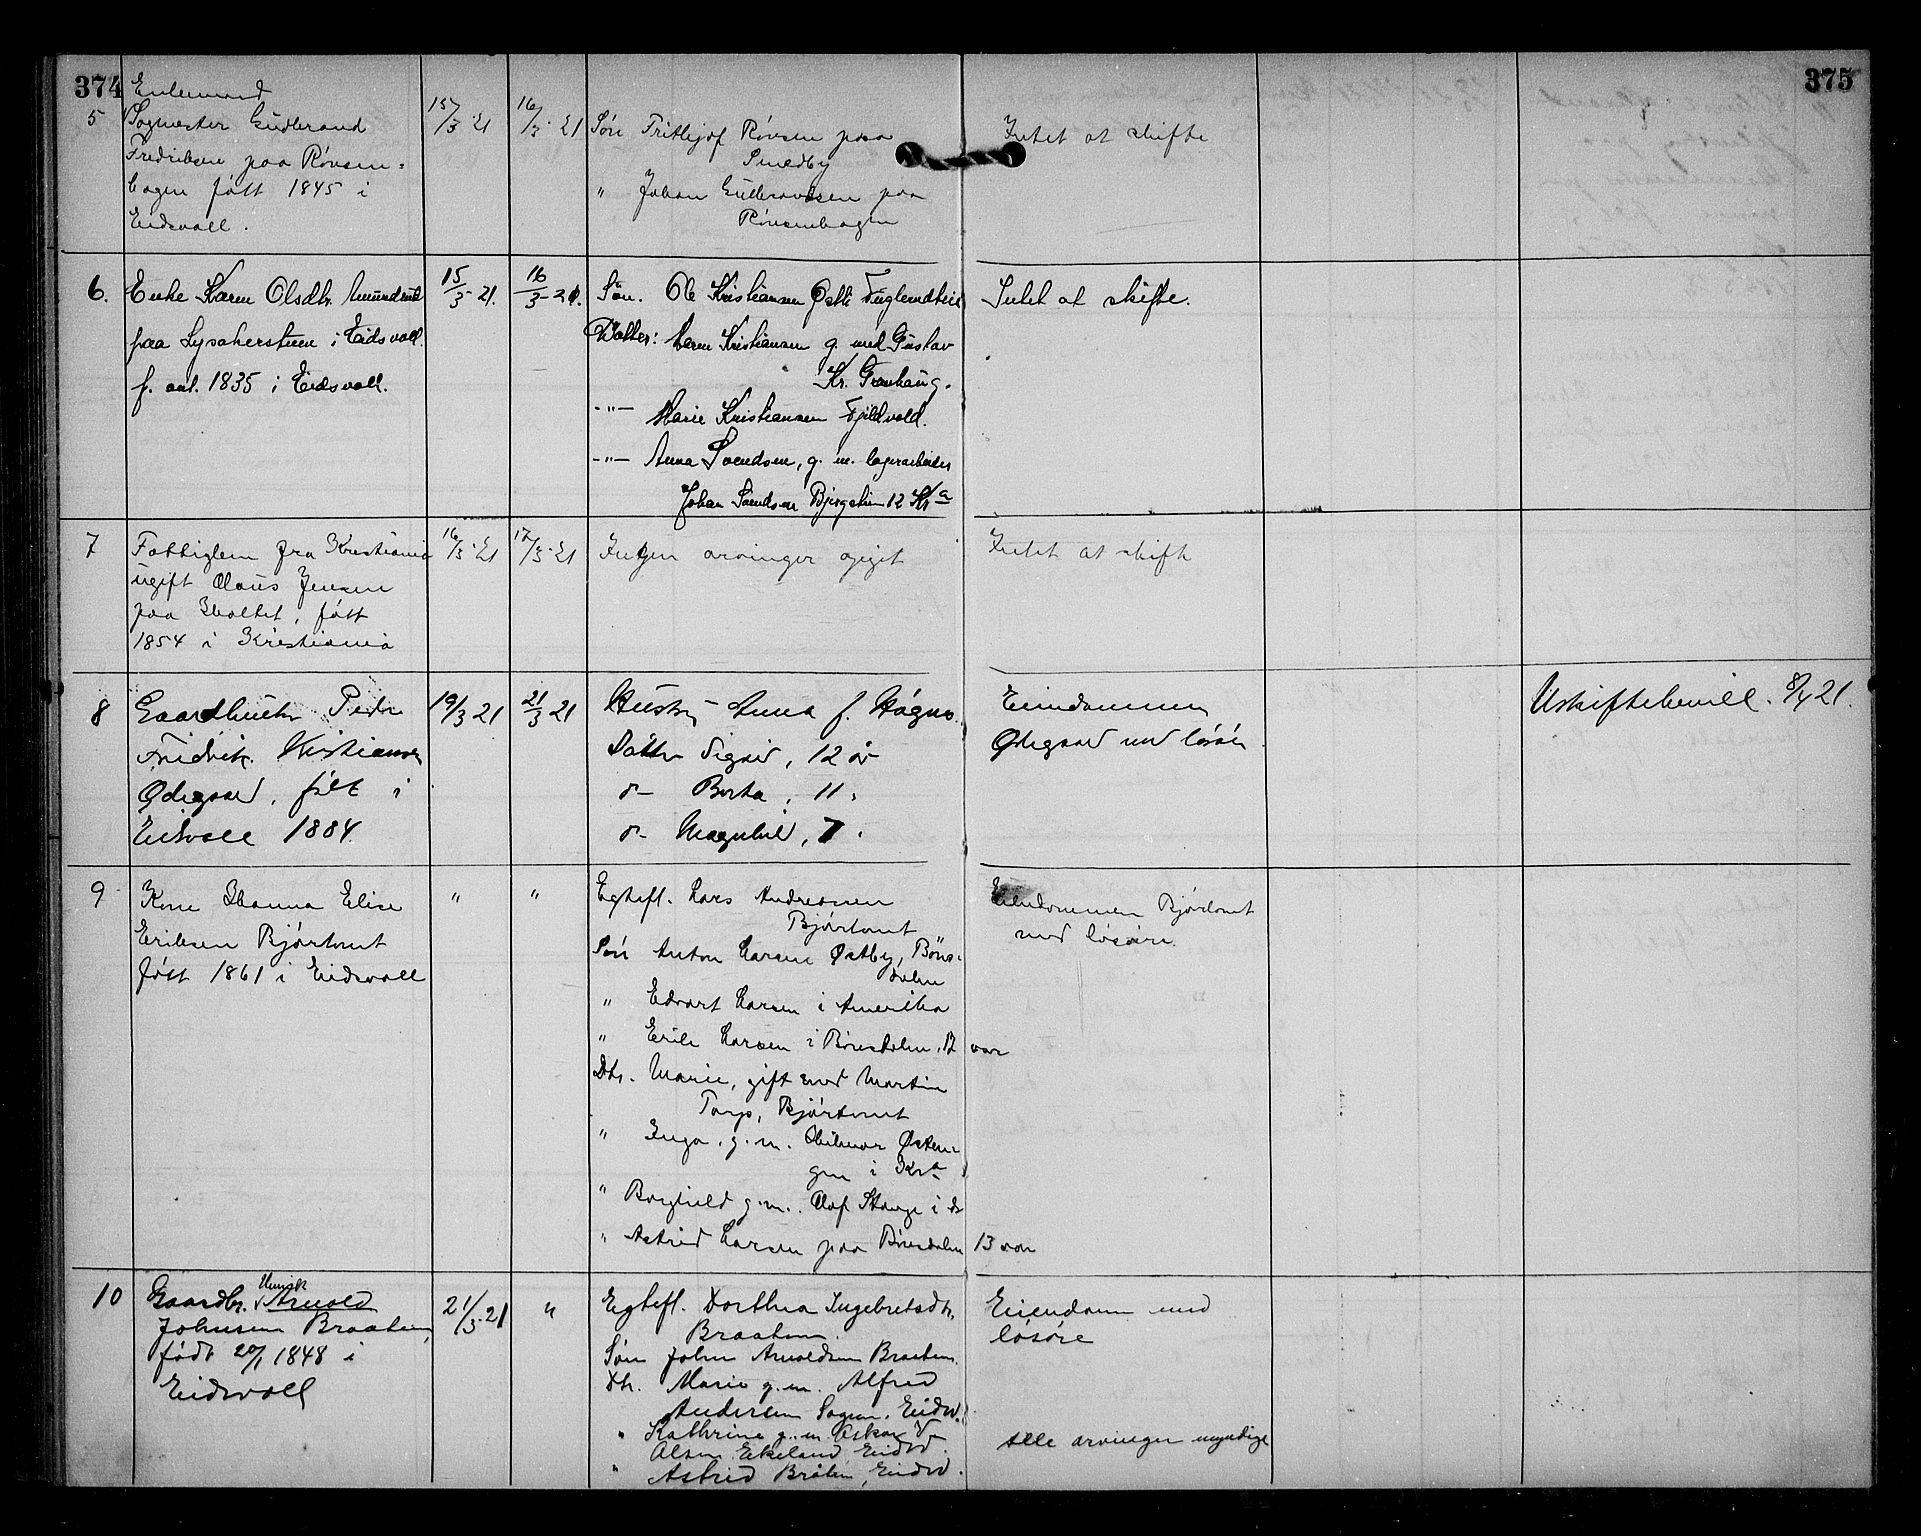 374
375
5
Enkemand
Sagmester Gudbrand
Fredriksen paa Rönsen=
hagen född 1845 i
Eidsvoll.
15/3-21
16/3-21
Sön Frithjof Rönsen paa
Smedby
" Johan Gulbrandsen paa
Rönsenhagen
Intet at skifte
6.
Enke Karen Olsdtr. Amundrud
paa Lysakerstuen i Eidsvoll.
f. ant. 1835 i Eidsvoll.
15/3-21.
16/3-21.
Sön. Ole Kristiansen Östli
Datter: Maren Kristiansen g. med Gustav
Kr. Granhaug.
-"- Marie Kristiansen Fjeldvold.
-"- Anna Svendsen, g. m. lagerarbeider
Johan Svendsen 12 Kra
Intet at skifte.
7
Fattiglem fra Kristiania
ugift Claus Jensen
paa Holtet, född
1854 i Kristiania
16/3-21
17/3-21
Ingen arvinger opgit
Intet at skifte
8
Gaardbruker Peder
Fredrik Kristiansen
Ødegaard, født i
Eidsvoll 1884.
19/3 21
21/3 21
Hustru Anna f. Høgmo.
Datter Sigrid, 12 år
do Borta, 11 "
do Magnhild, 7 "
Eiendommen
Ødegaard med lösöre
Uskiftebevill. 8/4 21.
9
Kone Hanna Elise
Eriksen Bjørtomt
född 1861 i Eidsvoll
"
"
Egtefl. Lars Andreasen
Bjørtomt
Sön Anton Larsen Østby, Böns-
dalen
" Edvart Larsen i Amerika
" Erik Larsen i Bönsdalen, 17 aar
Dtr. Marie, gift med Martin
Torp, Bjørtomt
" Inga, g. m. Hilmar Østen-
gen i Kra
" Borghild g. m. Olof Stange i do
" Astrid Larsen paa Bönsdalen 13 aar
Eiendommen Bjørtomt
med lösöre.
10
Gaardbr. Henrik Arnold
Johnsen Braaten,
født 20/1 1848 i
Eidsvoll
21/3-21
"
Egtefl. Dorthea Ingebretsdtr.
Braaten.
Sön John Arnoldsen Braaten.
Dtr. Marie g. m. Alfred
Andersen Sagen, Eidsv.
" Kathrine g. m. Oskar
Olsen Ekeland Eidsv.
" Astrid Bråten, Eidsv.
Eiendom med
lösöre
Alle arvinger myndige